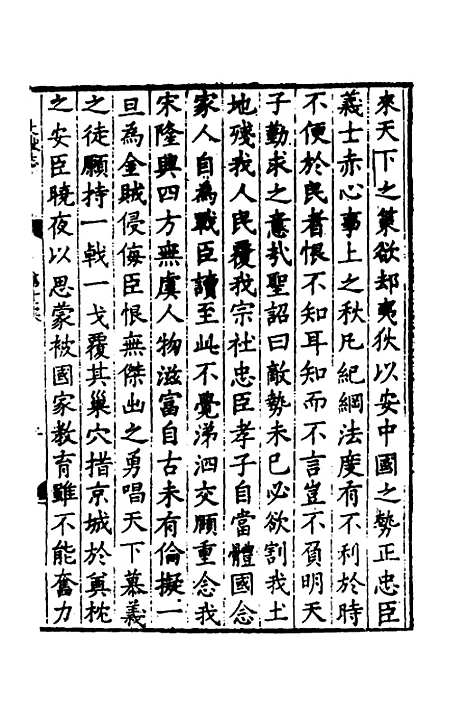 來天下之策欲却夷狄以安中國之勢正忠臣
義士赤心事上之秋凡紀綱法度有不利於時
不便於民者恨不知耳知而不言豈不負明天
子勤求之意㢤聖詔曰敵勢未已必欲割我土
地殘我人民覆我宗社忠臣孝子自當體國念
家人自為戰臣讀至此不覺涕泗交願重念我
宋隆興四方無虞人物滋富自古未有倫擬一
旦為金賊侵侮臣恨無傑出之勇唱天下慕義
之徒願持一戟一戈覆其巢穴措京城於奠枕
之安臣曉夜以思蒙被國家教育雖不能奮力